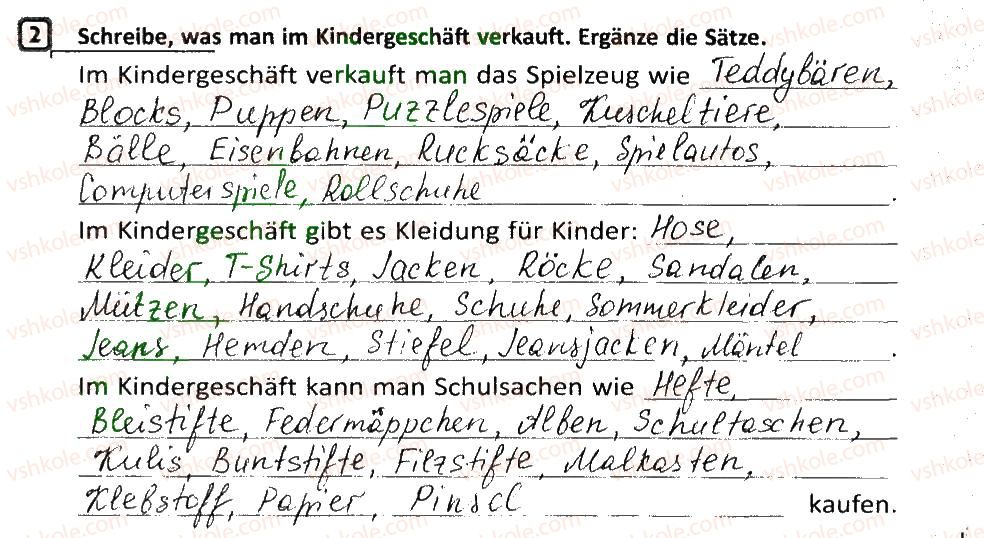 2 Schreibe, was man im Kindergeschäft verkauft. Ergänze die Sätze.
Im Kindergeschäft verkauft man das Spielzeug wie Teddybären,
Blocks, Puppen, Puzzlespiele, Kuscheltiere,
Bälle, Eisenbahnen, Rucksäcke, Spielautos,
Computerspiele, Rollschuhe.
Im Kindergeschäft gibt es Kleidung für Kinder: Hose,
Kleider, T-Shirts, Jacken, Röcke, Sandalen,
Mützen, Handschuhe, Schuhe, Sommerkleider,
Jeans, Hemden, Stiefel, Jeansjacken, Mäntel.
Im Kindergeschäft kann man Schulsachen wie Hefte,
Bleistifte, Federmäppchen, Alben, Schultaschen,
Kulis, Buntstifte, Filzstifte, Malkasten,
Klebstoff, Papier, Pinsel kaufen.
vshkole.com